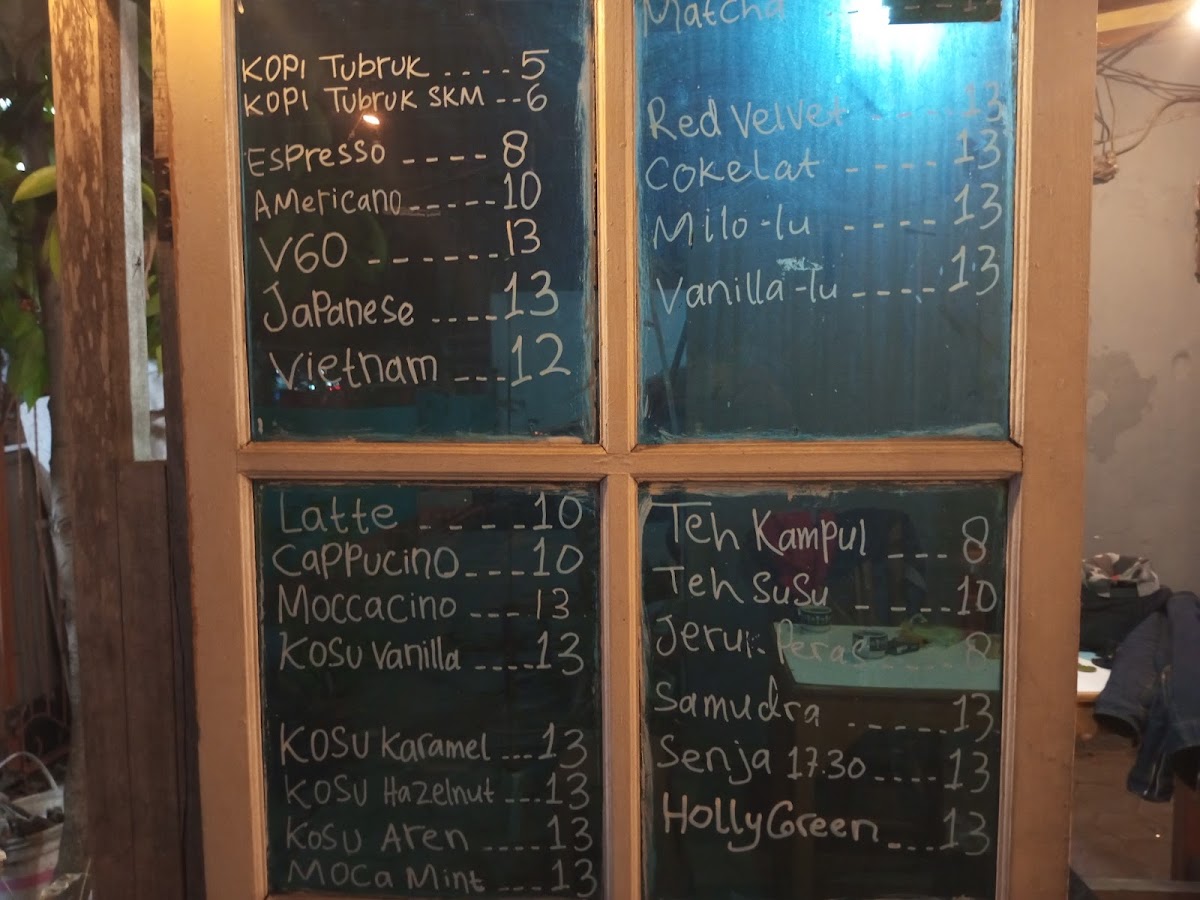 KOPI TUBRUK ---- 5
KOPI TUBRUK SKM -- 6
Espresso ---- 8
Americano ----- 10
V60 ------ 13
Japanese ---- 13
Vietnam --- 12
Matcha
Red Velvet ---- 13
Cokelat ---- 13
Milo-lu ---- 13
Vanilla-lu ---- 13
Latte ---- 10
Cappucino --- 10
Moccacino --- 13
Kosu Vanilla ---- 13
Kosu Karamel --- 13
Kosu Hazelnut --- 13
Kosu Aren ---- 13
Moca Mint --- 13
Teh Kampul --- 8
Teh Susu ---- 10
Peras ---- 8
Samudra ---- 13
Senja 17.30 ---- 13
Holly Green --- 13